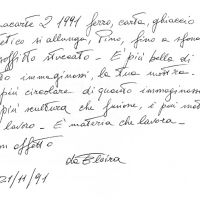 acarte 2 1991 ferro, carta, ghiaccio
etico si allunga, Pino, fino a sfond
soffitto stuccato - È più bella di
to immaginassi, la tua mostra.
più circolare di quanto immaginassi
più scultura che funione, i più mot
lavoro - È materia che lavora -
on affetto
da Eloira
21/11/91